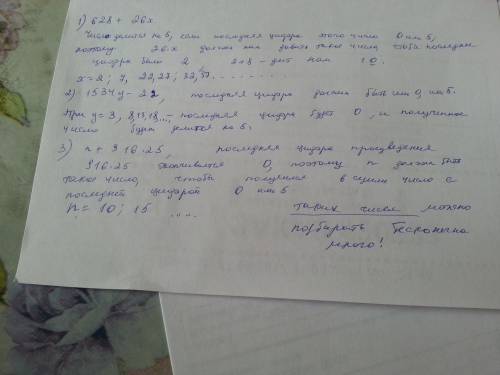 1) 628 + 26x
Число делится на 5, если последняя цифра этого числа 0 или 5,
поэтому 26·x должен нам давать такое число, чтобы последняя
цифра была 2 2+8 - даёт нам 10.
x = 2; 7, 22, 27; 32, 37. . . . . . . .
2) 1534y - 22, последняя цифра должна быть или 0, или 5.
При y = 3, 8, 13, 18..., - последняя цифра будет 0, и полученное
число будет делится на 5.
3) n + 316·25, последняя цифра произведения
316·25 заканчивается 0, поэтому n должен быть
такое число, чтобы получился в сумме число с
последней цифрой 0 или 5
n = 10; 15 . . . .
таких чисел можно
подбирать бесконечно
много!